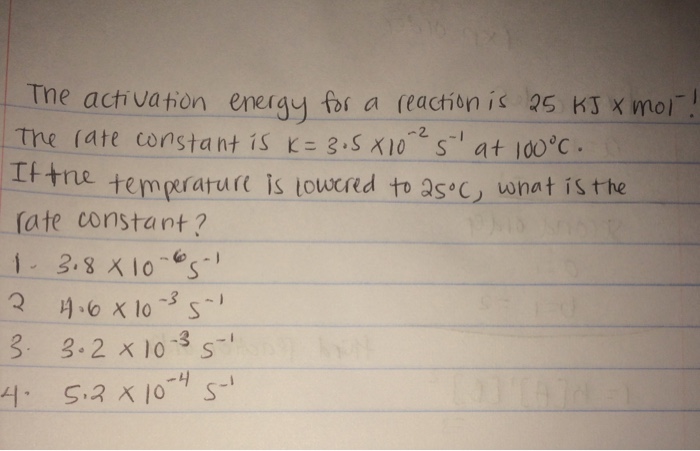 The activation energy for a reaction is 25 KJ x mol⁻¹.
The rate constant is K = 3.5 x10⁻² s⁻¹ at 100°C.
If the temperature is lowered to 25°C, what is the
rate constant?
1- 3.8 x 10⁻⁶ s⁻¹
2 4.6 x 10⁻³ s⁻¹
3. 3.2 x 10⁻³ s⁻¹
4. 5.2 x 10⁻⁴ s⁻¹